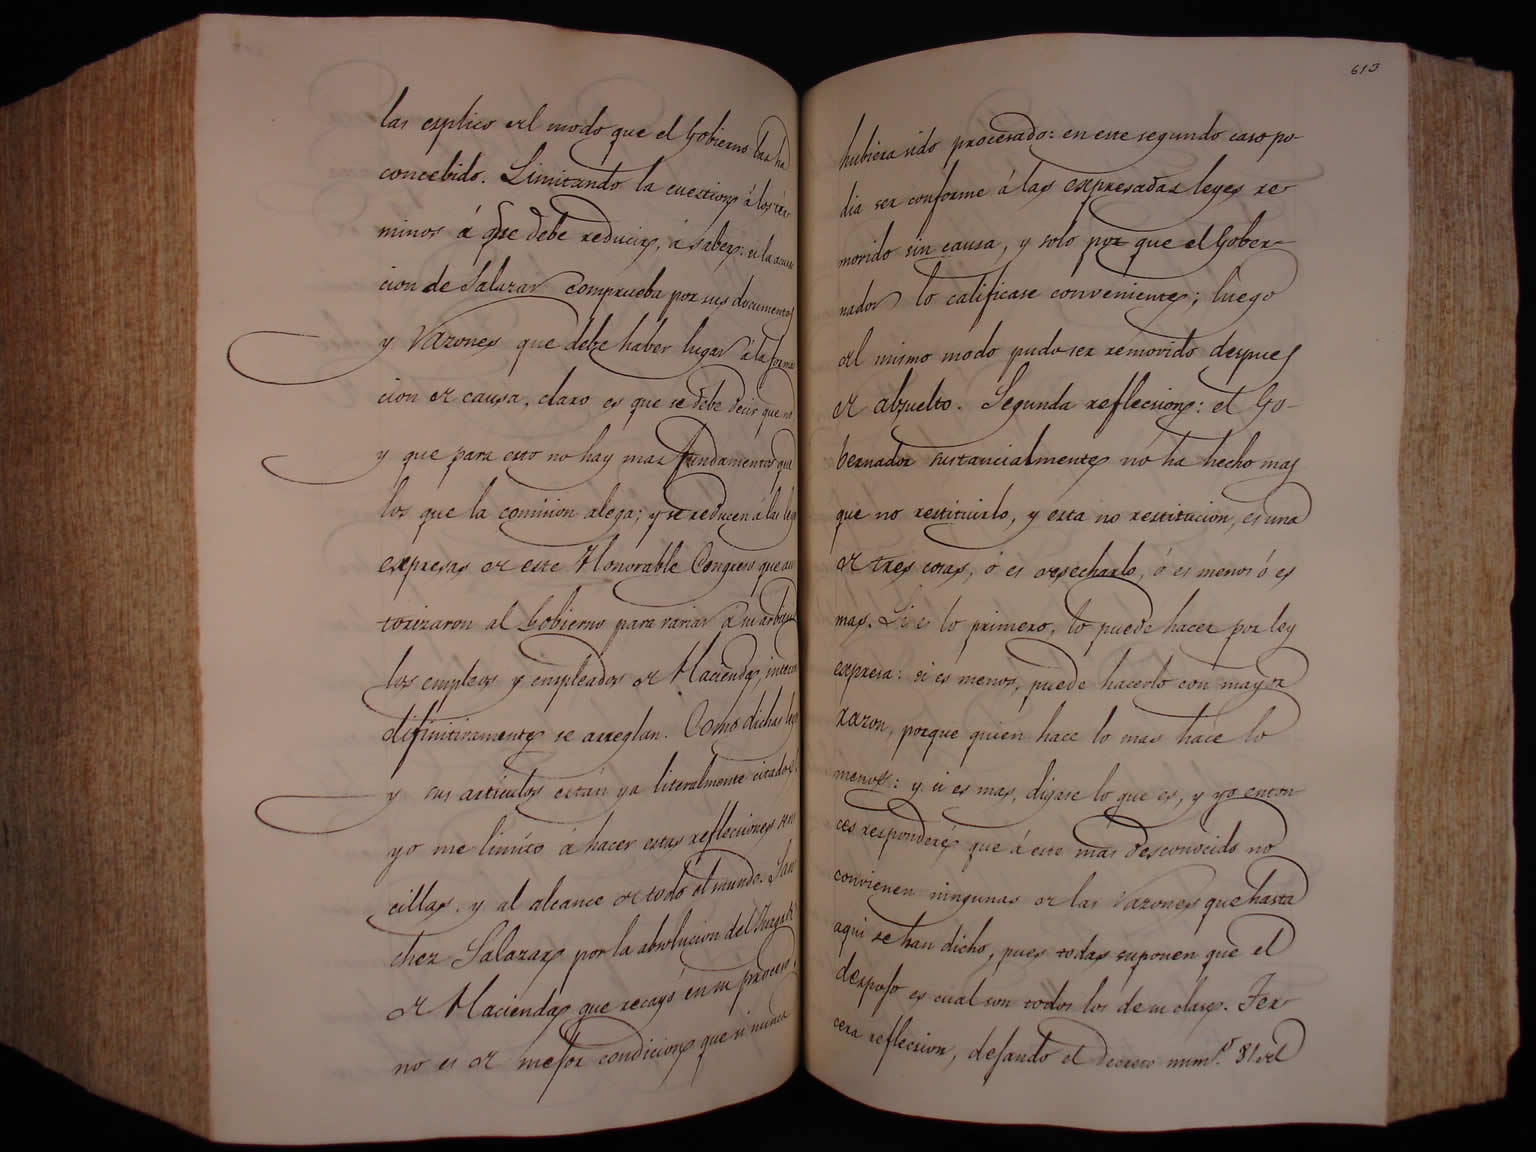 las esplico del modo que el Gobierno las ha
concebido. Limitando la cuestion á los tér-
minos á que debe reducirse, á saber: si la acusa
cion de Salazar comprueba por sus documentos
y razones que debe haber lugar á la forma
cion de causa, claro es que se debe decir que no
y que para esto no hay mas fundamentos que
los que la comision alega; y se reducen á las leyes
expresas de este Honorable Congreso que au
torizaron al Gobierno para variar á su arbitrio
los empleos y empleados de Hacienda, interin
difinitivamente se arreglan. Como dichas leyes
y sus artículos están ya literalmente citados
yo me limito á hacer estas reflecciones sen
cillas, y al alcance de todo el mundo. San
chez Salazar por la absolucion del Juzgado
de Hacienda que recayó en su proceso,
no es de mejor condicion que si nunca
613
hubiera sido procesado: en este segundo caso po
dia ser conforme á las expresadas leyes re-
movido sin causa, y solo por que el Gober-
nador lo calificase conveniente; luego
del mismo modo pudo ser removido despues
de absuelto. Segunda reflecsion: el Go-
bernador sustancialmente nó ha hecho mas
que no restituirlo, y esta no restitucion, es una
de tres cosas, ó es desecharlo, ó es menos ó es
mas. Si es lo primero, lo puede hacer por ley
expresa: si es menos, puede hacerlo con mayor
razon, porque quien hace lo mas hace lo
menos: y si es mas, digase lo que es, y yo enton
ces responderé que á este más desconocido no
convienen ningunas de las razones que hasta
aqui se han dicho, pues todas suponen que el
despojo es cual son todos los de su clase. Ter-
cera reflecsion, dejando el Decreto num.º 81 del